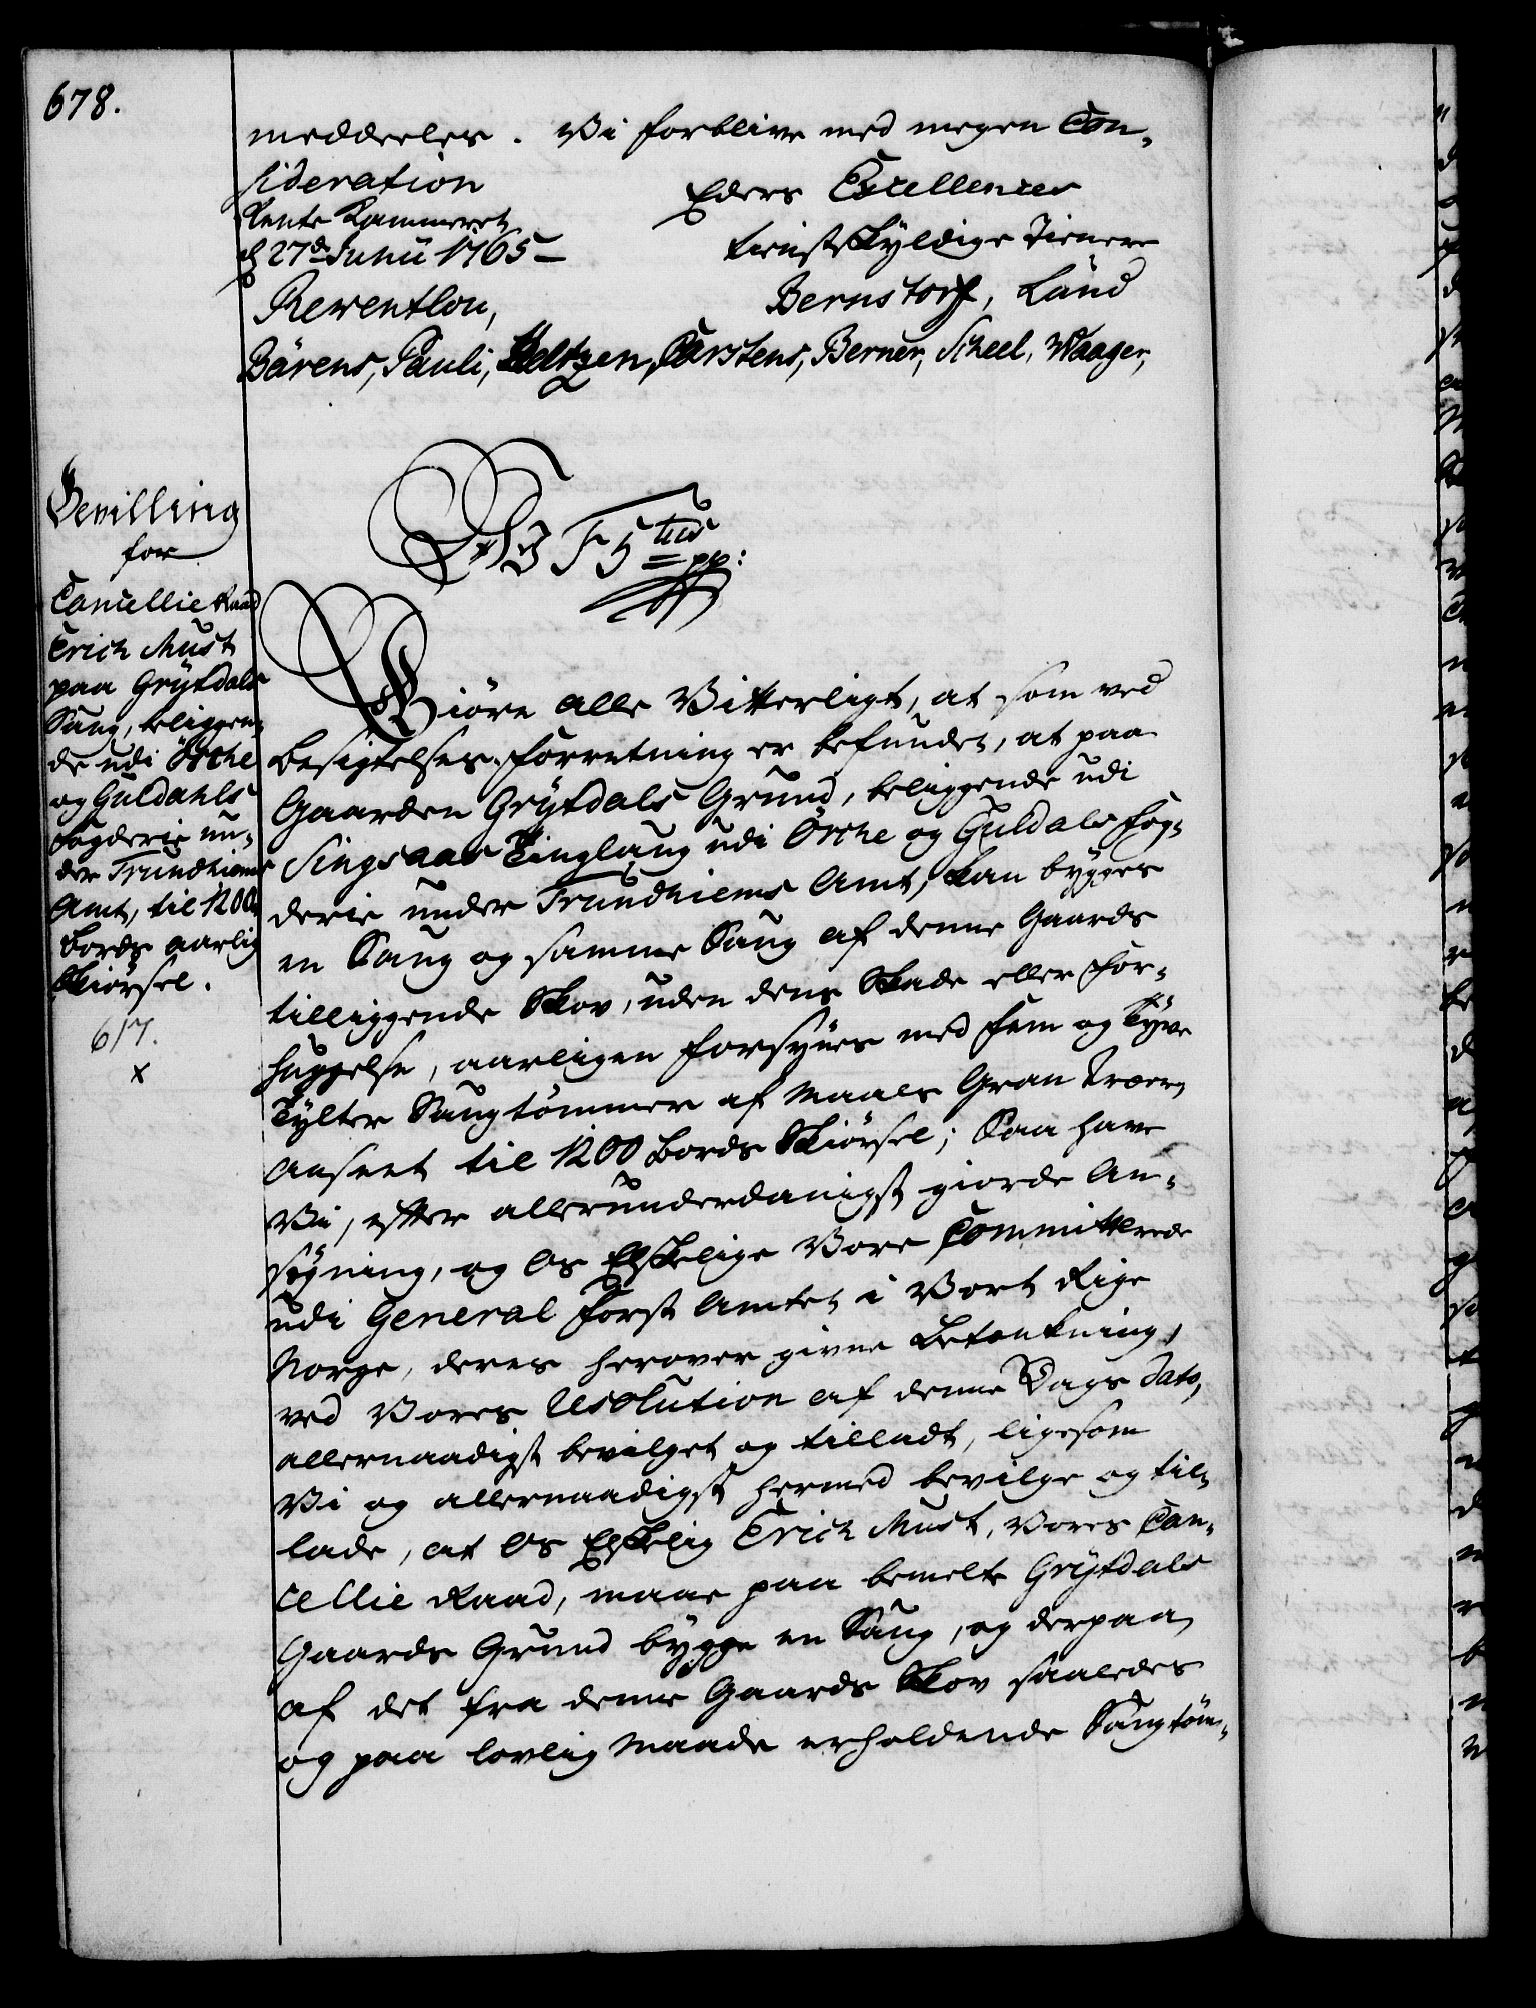 678.
meddeeles. Vi forblive med megen Con-
sideration
Rente Kammeret
d 27de Junii 1765 -
Eders Excellences
tienstskyldige Tienere
Rewentlou, Bernstorff, Lünd
Bärens, Pauli, Heltzen, Carstens, Berner, Scheel, Waager,
Bevilling
for
Cancellie Raad
Erich Must
paa Grÿtdals
Saug, beliggen-
de udi Örche
og Guldahls
Fogderie un-
der Trundhiems
Amt, til 1200
Bords aarlig
Skiörsel.
617.
x
Wi F 5 tus pp:
Giöre alle Vitterligt, at som ved
Besigtelses-Forretning er befunden, at paa
Gaarden Grÿtdals Grund, beliggende udi
Singsaas Tinglaug udi Örche og Guldals Fog-
derie under Trundhiems Amt, kan bygges
en Saug og samme Saug af denne Gaards
tilliggende Skov, uden dens Skade eller For-
huggelse, aarligen forsÿnes med Fem og Tÿve
Tÿlter Saugtömmer af Maals Gran Træer,
anseet til 1200 Bords Skiörsel; Saa have
Vi, efter allerunderdanigst giorde An-
søgning, og Os Elskelige Vore Committerede
udi General Forst Amtet i Vort Rige
Norge, deres herover givne Betænkning,
ved Vores Resolution af denne Dags Dato,
allernaadigst bevilget og tilladt, ligesom
Vi og allernaadigst hermed bevilge og til-
lade, at Os Elskelig Erich Must, Vores Can-
cellie Raad, maae paa bemelte Grÿtdals
Gaards Grund bygge en Saug, og derpaa
af det fra denne Gaards Skov saaledes
og paa lovlig Maade erholdende Saugtöm-